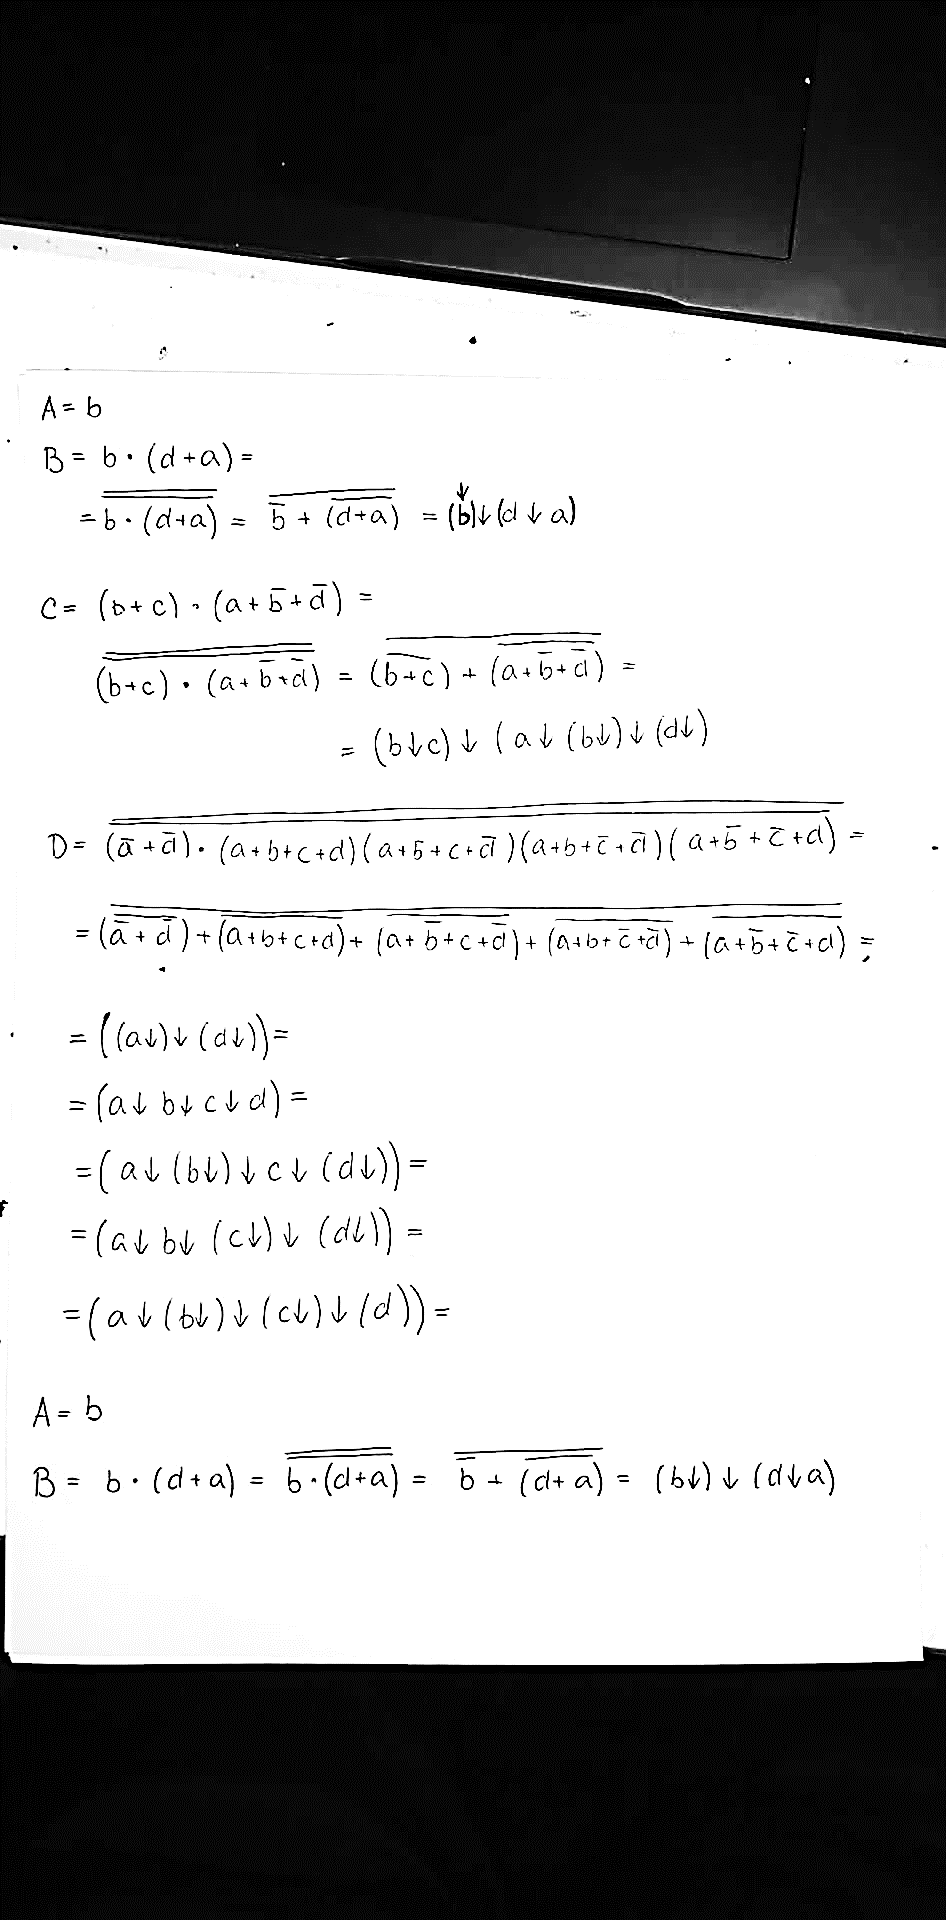 A = b
B = b · (d+a) =
= \overline{\overline{b · (d+a)}} = \overline{\overline{b} + \overline{(d+a)}} = (b↓)↓(d ↓ a)
C = (b+c) · (a+\overline{b}+\overline{d}) =
\overline{\overline{(b+c) · (a+\overline{b}+\overline{d})}} = \overline{\overline{(b+c)} + \overline{(a+\overline{b}+\overline{d})}} =
= (b↓c) ↓ (a↓ (b↓) ↓ (d↓)
D = \overline{\overline{(\overline{a}+\overline{d}) · (a+b+c+d)(a+\overline{b}+c+\overline{d})(a+b+\overline{c}+\overline{d})(a+\overline{b}+\overline{c}+d)}} =
= \overline{\overline{(\overline{a}+\overline{d})} + \overline{(a+b+c+d)} + \overline{(a+\overline{b}+c+\overline{d})} + \overline{(a+b+\overline{c}+\overline{d})} + \overline{(a+\overline{b}+\overline{c}+d)}} =
= ((a↓)↓ (d↓)) =
= (a↓ b↓ c↓ d) =
= (a↓ (b↓) ↓ c↓ (d↓)) =
= (a↓ b↓ (c↓) ↓ (d↓)) =
= (a ↓ (b↓) ↓ (c↓) ↓ (d)) =
A = b
B = b · (d+a) = \overline{\overline{b·(d+a)}} = \overline{\overline{b} + \overline{(d+a)}} = (b↓) ↓ (d↓a)